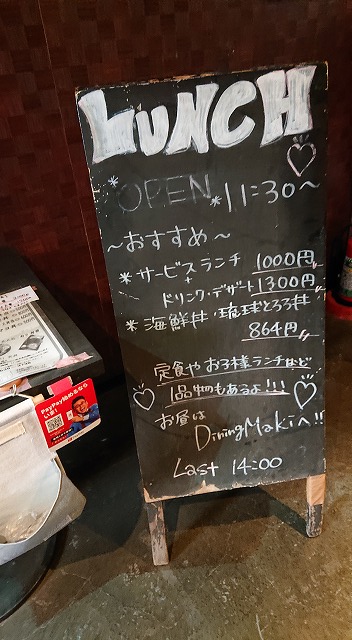 LUNCH
*OPEN* 11:30〜
〜おすすめ〜
*サービスランチ 1000円
+
ドリンク・デザート 1300円
*海鮮丼・琉球とろろ丼
864円
定食やお子様ランチなど
1品物もあるよ!!!
お昼は
Dining Makiへ!!
Last 14:00
PayPay